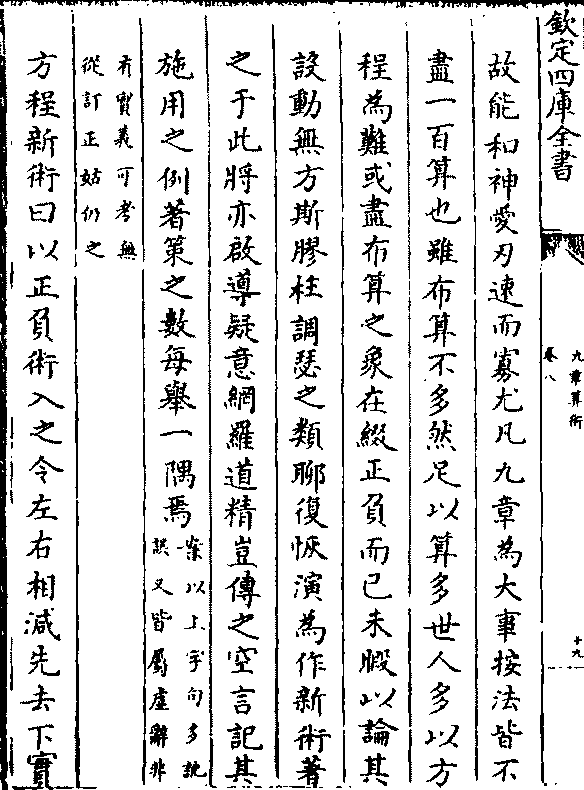 欽定四庫全書
九章算術
卷八
十九
故能和神愛刃速而寡尤凡九章為大事按法皆不
盡一百算也雖布算不多然足以算多世人多以方
程為難或盡布算之象在綴正負而已未暇以論其
設動無方斯膠柱調瑟之類聊復恢演為作新術著
之于此將亦啟導疑意網羅道精豈傳之空言記其
施用之例著策之數每舉一隅焉
案以上字句多訛
誤又皆屬虛辭非
有實義可考無
從訂正姑仍之
方程新術曰以正負術入之令左右相減先去下實